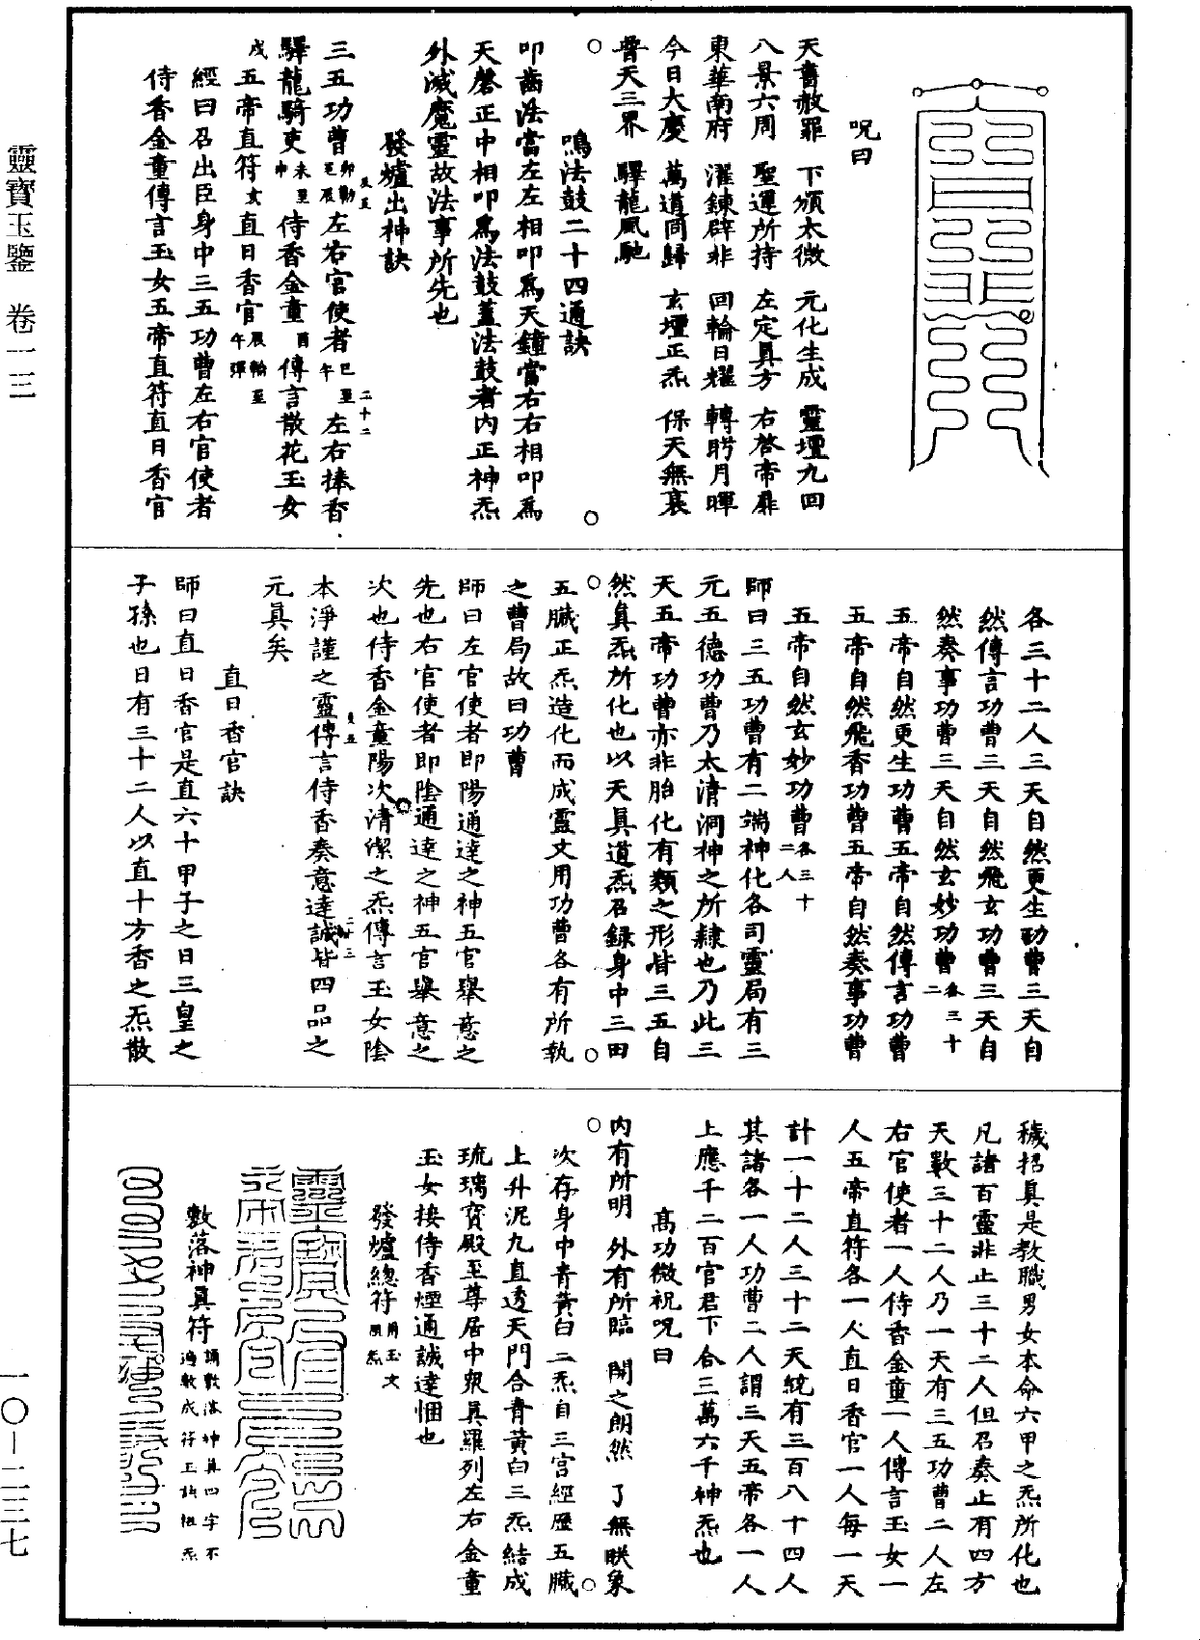 靈寶玉鑒　卷一三
一〇－二三七
呪曰
天書赦罪　下頒太微　元化生成　靈壇九回
八景六周　聖運所持　左定真方　右啓帝扉
東華南府　濯鍊辟非　回輪日耀　轉眄月暉
今日大慶　萬道同歸　玄壇正炁　保天無衰
普天三界　驛龍風馳
鳴法鼓二十四通訣
叩齒法當左左相叩爲天鐘當右右相叩爲
天磬正中相叩爲法鼓蓋法鼓者内正神炁
外滅魔靈故法事所先也
發爐出神訣
三五功曹左右官使者巳至午左右捧香
驛龍騎吏未至申侍香金童酉傳言散花玉女
戌五帝直符亥直日香官辰輪至午彈
經曰召出臣身中三五功曹左右官使者
侍香金童傳言玉女五帝直符直日香官
各三十二人三天自然更生功曹三天自
然傳言功曹三天自然飛玄功曹三天自
然奏事功曹三天自然玄妙功曹各三十二
五帝自然更生功曹五帝自然傳言功曹
五帝自然飛香功曹五帝自然奏事功曹
五帝自然玄妙功曹各三十二人
師曰三五功曹有二端神化各司靈局有三
元五德功曹乃太清洞神之所隸也乃此三
天五帝功曹亦非胎化有類之形皆三五自
然真炁所化也以天真道炁召録身中三田
五臟正炁造化而成靈文用功曹各有所執
之曹局故曰功曹
師曰左官使者即陽通達之神五官舉意之
先也右官使者即陰通達之神五官舉意之
次也侍香金童陽次清潔之炁傳言玉女陰
本淨謹之靈傳言侍香奏意達誠皆四品之
元真矣
直日香官訣
師曰直日香官是直六十甲子之日三皇之
子孫也日有三十二人以直十方香之炁散
穢招真是教職男女本命六甲之炁所化也
凡諸百靈非止三十二人但召奏止有四方
天數三十二人乃一天有三五功曹二人左
右官使者一人侍香金童一人傳言玉女一
人五帝直符各一人直日香官一人每一天
計一十二人三十二天統有三百八十四人
其諸各一人功曹二人謂三天五帝各一人
上應千二百官君下合三萬六千神炁也
高功微祝呪曰
内有所明　外有所臨　開之朗然　了無朕象
次存身中青黄白三炁自三宫經歷五臟
上升泥丸直透天門合青黄白三炁結成
琉璃寶殿至尊居中衆真羅列左右金童
玉女接侍香煙通誠達悃也
發爐總符
敷落神真符誦敷落神真四字不